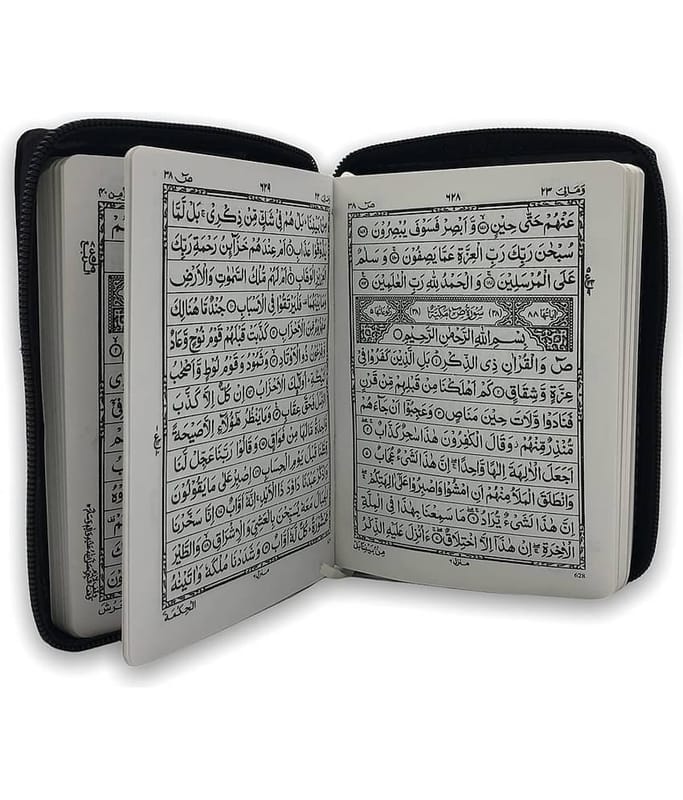 وَمَالِیَ ٢٣ ٦٢٨ صٓ ٣٨
عَنْهُمْ حَتّٰى حِيْنٍ ۝ وَّ اَبْصِرْ فَسَوْفَ يُبْصِرُوْنَ ۝
سُبْحٰنَ رَبِّكَ رَبِّ الْعِزَّةِ عَمَّا يَصِفُوْنَ ۝ وَ سَلٰمٌ
عَلَى الْمُرْسَلِيْنَ ۝ وَ الْحَمْدُ لِلّٰهِ رَبِّ الْعٰلَمِيْنَ ۝
اٰيَاتُهَا ٨٨ (٣٨) سُوْرَةُ صٓ مَكِّيَّةٌ (٣٨) رُكُوْعَاتُهَا ٥
بِسْمِ اللّٰهِ الرَّحْمٰنِ الرَّحِيْمِ
صٓ وَ الْقُرْاٰنِ ذِى الذِّكْرِ ۝ بَلِ الَّذِيْنَ كَفَرُوْا فِىْ
عِزَّةٍ وَّ شِقَاقٍ ۝ كَمْ اَهْلَكْنَا مِنْ قَبْلِهِمْ مِّنْ قَرْنٍ
فَنَادَوْا وَّلَاتَ حِيْنَ مَنَاصٍ ۝ وَعَجِبُوْۤا اَنْ جَآءَهُمْ
مُّنْذِرٌ مِّنْهُمْ وَقَالَ الْكٰفِرُوْنَ هٰذَا سٰحِرٌ كَذَّابٌ ۝
اَجَعَلَ الْاٰلِهَةَ اِلٰهًا وَّاحِدًا اِنَّ هٰذَا لَشَىْءٌ عُجَابٌ ۝
وَانْطَلَقَ الْمَلَاُ مِنْهُمْ اَنِ امْشُوْا وَاصْبِرُوْا عَلٰٓى اٰلِهَتِكُمْ
اِنَّ هٰذَا لَشَىْءٌ يُّرَادُ ۝ مَا سَمِعْنَا بِهٰذَا فِى الْمِلَّةِ
الْاٰخِرَةِ اِنْ هٰذَآ اِلَّا اخْتِلَاقٌ ۝ ءَاُنْزِلَ عَلَيْهِ الذِّكْرُ
مِنْۢ بَيْنِنَا بَلْ
منزل ٦
628
٢٣ ٦٢٩ صٓ ٣٨
مِنْۢ بَيْنِنَا بَلْ هُمْ فِىْ شَكٍّ مِّنْ ذِكْرِىْ بَلْ لَّمَّا
يَذُوْقُوْا عَذَابِ ۝ اَمْ عِنْدَهُمْ خَزَآئِنُ رَحْمَةِ رَبِّكَ
الْعَزِيْزِ الْوَهَّابِ ۝ اَمْ لَهُمْ مُّلْكُ السَّمٰوٰتِ وَالْاَرْضِ
وَمَا بَيْنَهُمَا فَلْيَرْتَقُوْا فِى الْاَسْبَابِ ۝ جُنْدٌ مَّا هُنَالِكَ
مَهْزُوْمٌ مِّنَ الْاَحْزَابِ ۝ كَذَّبَتْ قَبْلَهُمْ قَوْمُ نُوْحٍ وَّعَادٌ
وَّفِرْعَوْنُ ذُو الْاَوْتَادِ ۝ وَثَمُوْدُ وَقَوْمُ لُوْطٍ وَّاَصْحٰبُ
لْــَٔيْكَةِ اُولٰٓئِكَ الْاَحْزَابُ ۝ اِنْ كُلٌّ اِلَّا كَذَّبَ
الرُّسُلَ فَحَقَّ عِقَابِ ۝ وَمَا يَنْظُرُ هٰٓؤُلَآءِ اِلَّا صَيْحَةً
وَّاحِدَةً مَّا لَهَا مِنْ فَوَاقٍ ۝ وَقَالُوْا رَبَّنَا عَجِّلْ لَّنَا
قِطَّنَا قَبْلَ يَوْمِ الْحِسَابِ ۝ اِصْبِرْ عَلٰى مَا يَقُوْلُوْنَ
وَاذْكُرْ عَبْدَنَا دَاوٗدَ ذَا الْاَيْدِ اِنَّهٗٓ اَوَّابٌ ۝ اِنَّا سَخَّرْنَا
الْجِبَالَ مَعَهٗ يُسَبِّحْنَ بِالْعَشِىِّ وَالْاِشْرَاقِ ۝ وَالطَّيْرَ
مَحْشُوْرَةً كُلٌّ لَّهٗٓ اَوَّابٌ ۝ وَشَدَدْنَا مُلْكَهٗ وَاٰتَيْنٰهُ
منزل ٦
الْحِكْمَةَ